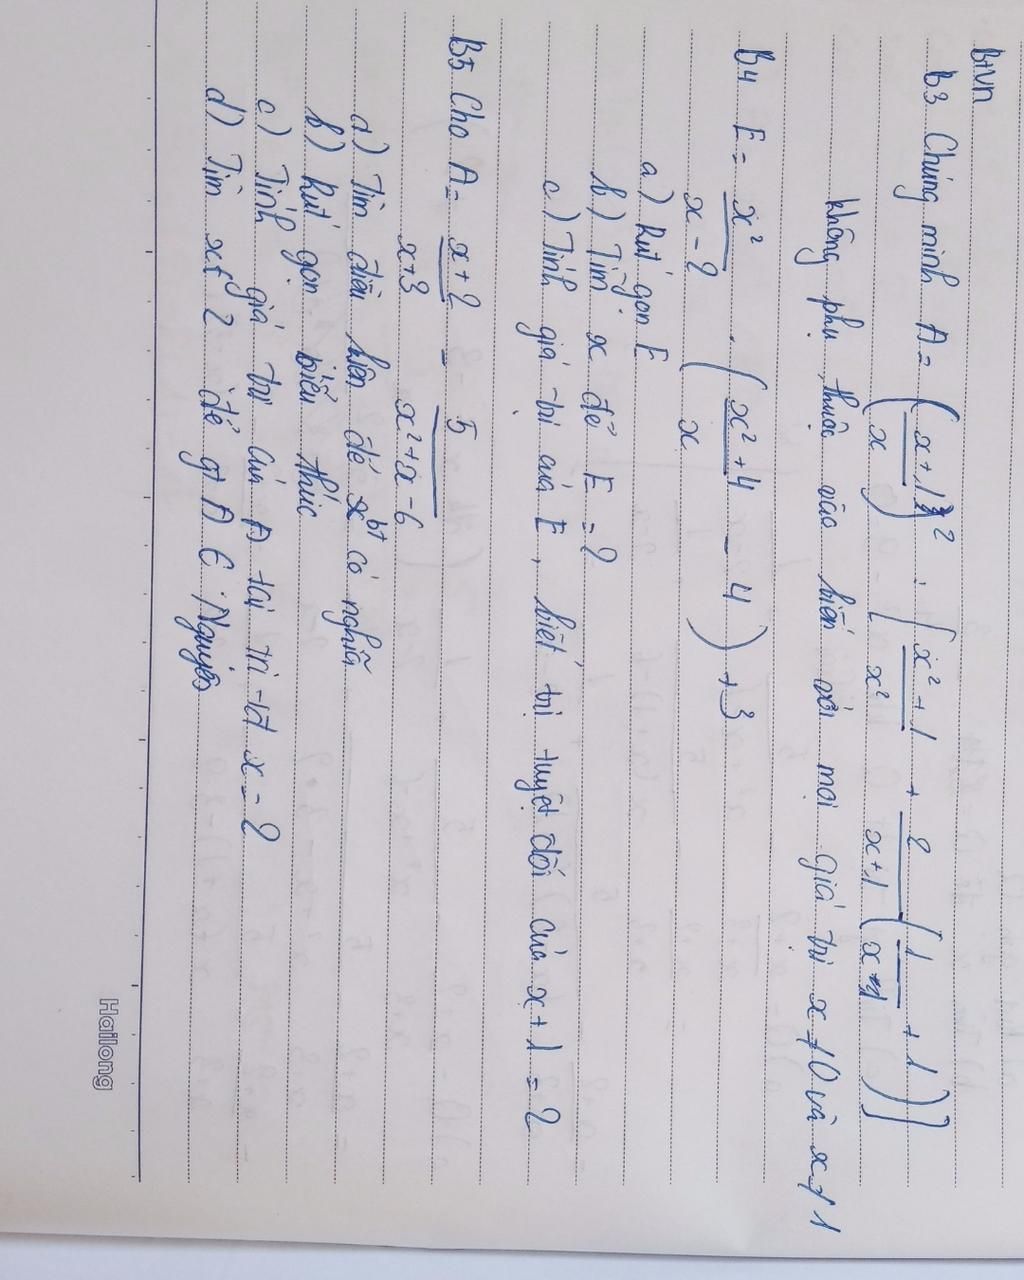 BTVN
B3 Chứng minh A = (x+1/x)² : [x²+1/x² + 2/x+1 (1/x+1 + 1)]
không phụ thuộc vào biến với mọi giá trị x ≠ 0 và x ≠ 1
B4 E = x²/x-2 . (x²+4/x - 4) + 3
a) Rút gọn E
b) Tìm x để E = 2
c) Tính giá trị của E, biết trị tuyệt đối của x+1 = 2
B5 Cho A = x+2/x+3 - 5/x²+x-6
a) Tìm điều kiện để bt có nghĩa
b) Rút gọn biểu thức
c) Tính giá trị của A tại trị x = 2
d) Tìm x ∈ Z để gt A ∈ Nguyên
Hailong